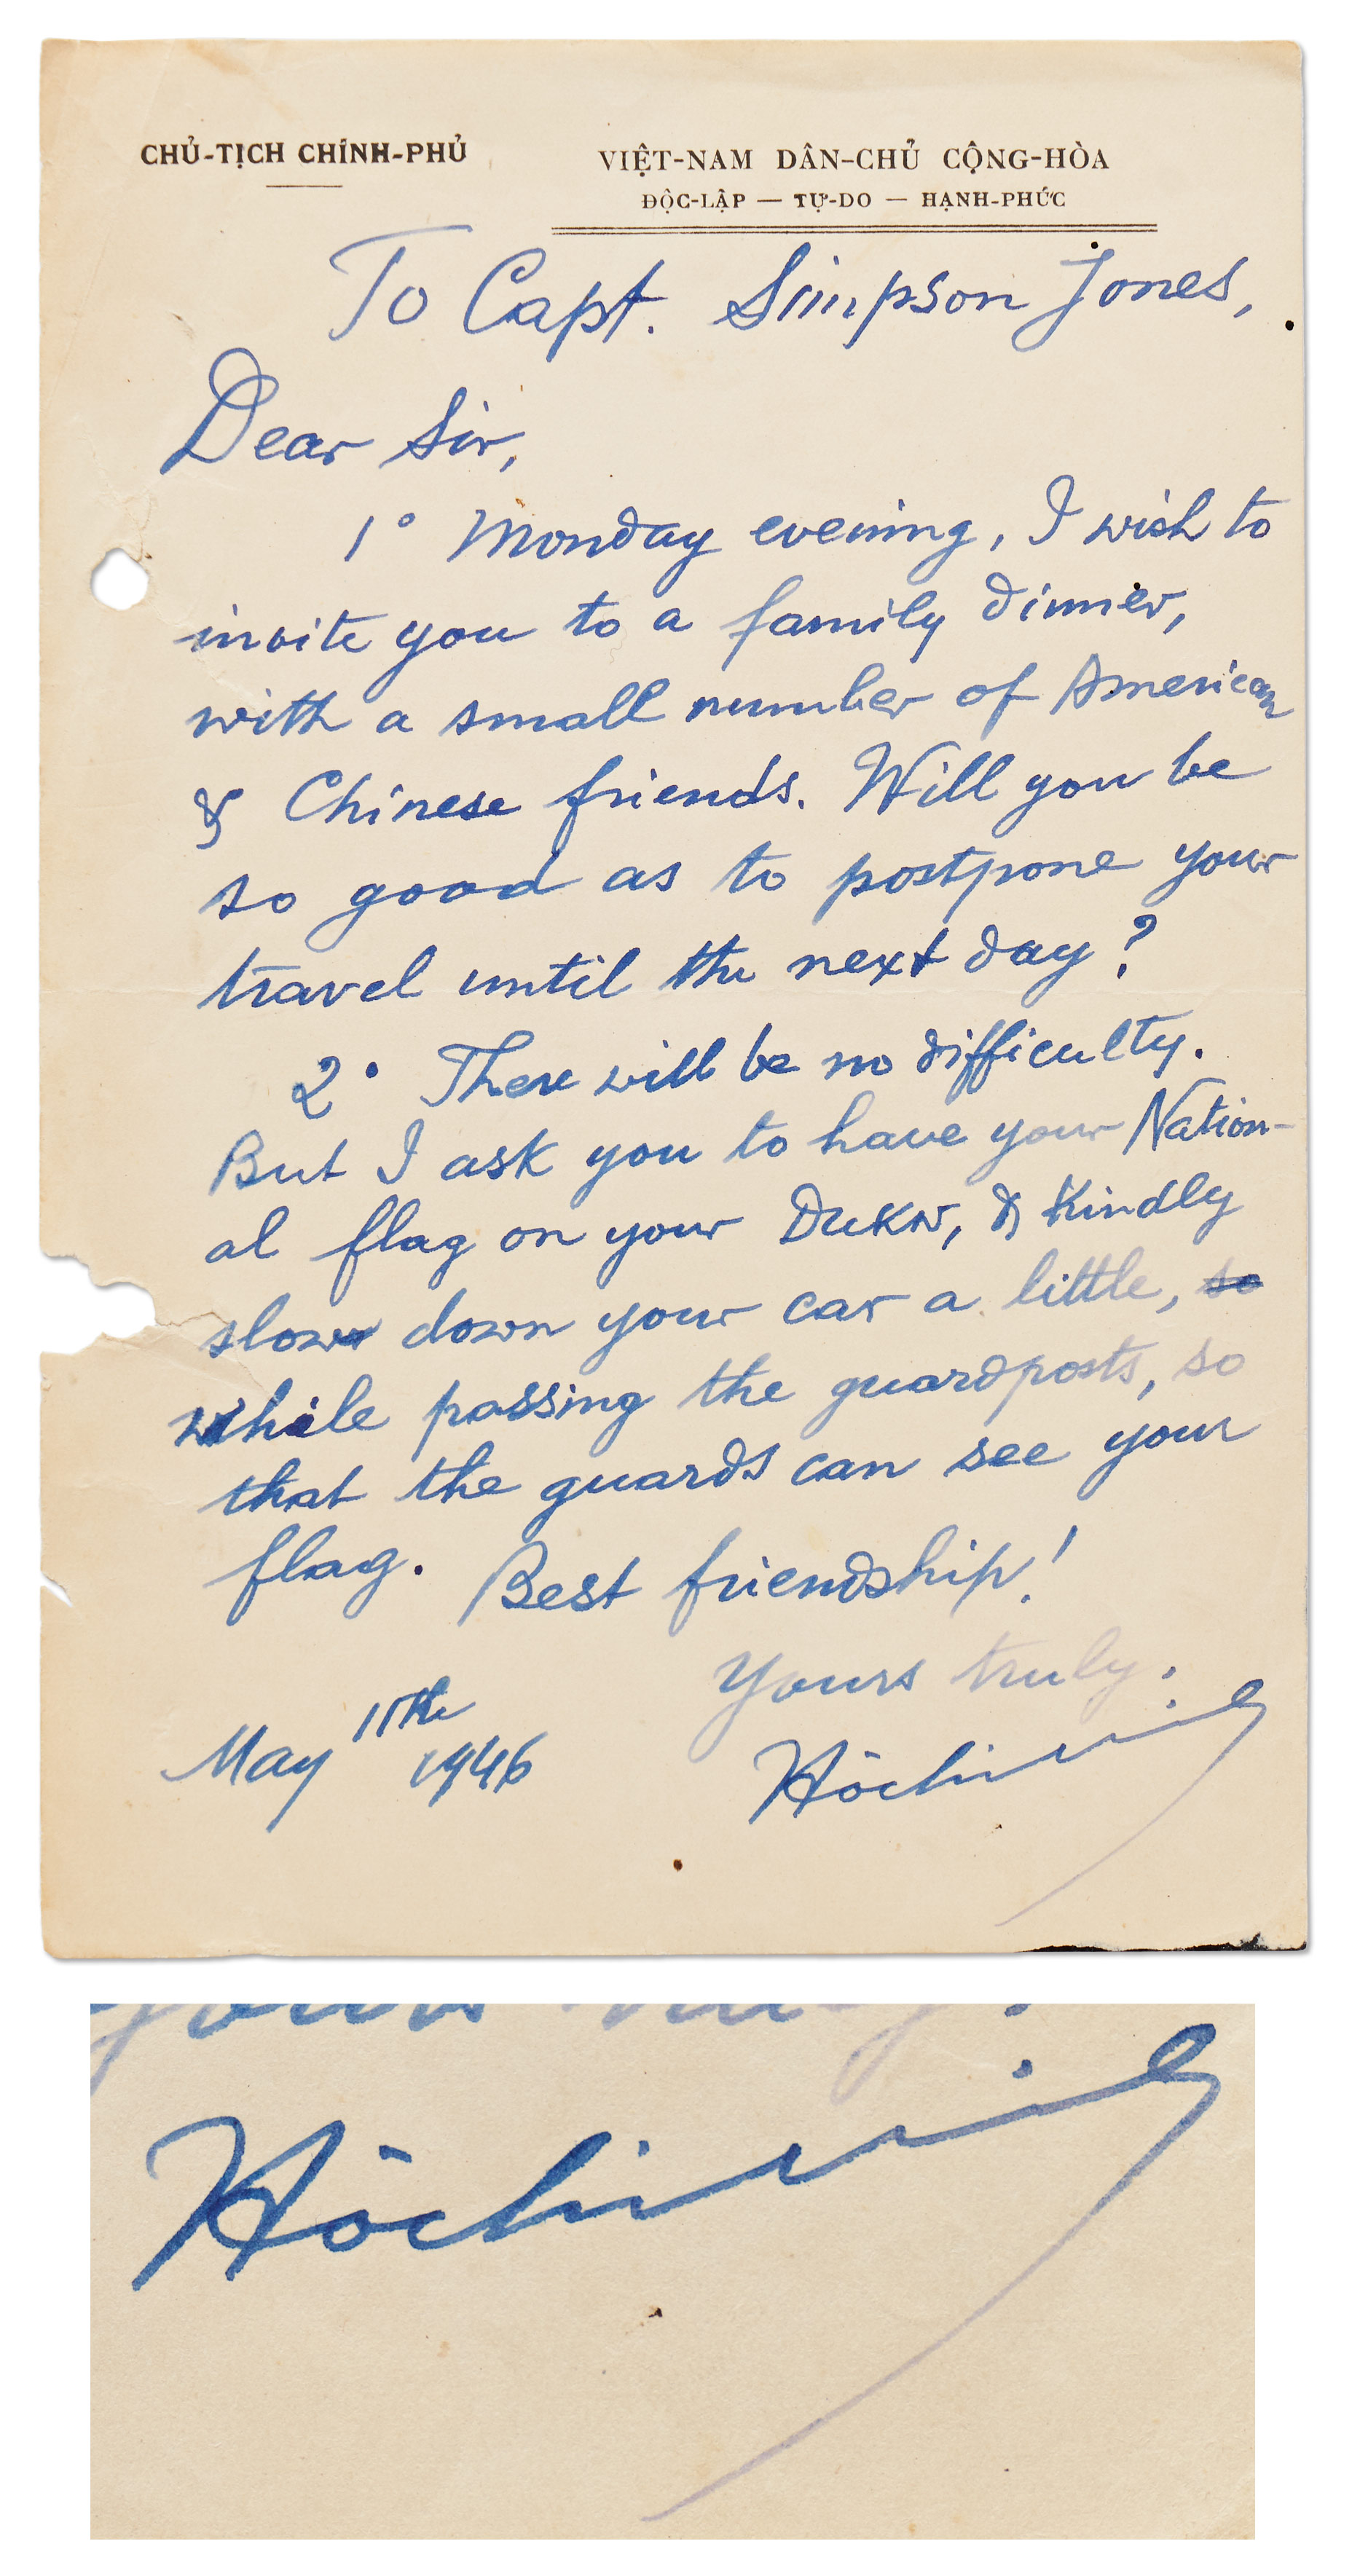 CHỦ-TỊCH CHÍNH-PHỦ
VIỆT-NAM DÂN-CHỦ CỘNG-HÒA
ĐỘC-LẬP — TỰ-DO — HẠNH-PHÚC
To Capt. Simpson Jones,
Dear Sir,
1° Monday evening, I wish to
invite you to a family dinner,
with a small number of American
& Chinese friends. Will you be
so good as to postpone your
travel until the next day?
2° There will be no difficulty.
But I ask you to have your Nation-
al flag on your Dukw, & kindly
slow down your car a little, so
while passing the guardposts, so
that the guards can see your
flag. Best friendship!
Yours truly.
May 11th 1946
Hồchiminh
yours truly.
Hồchiminh